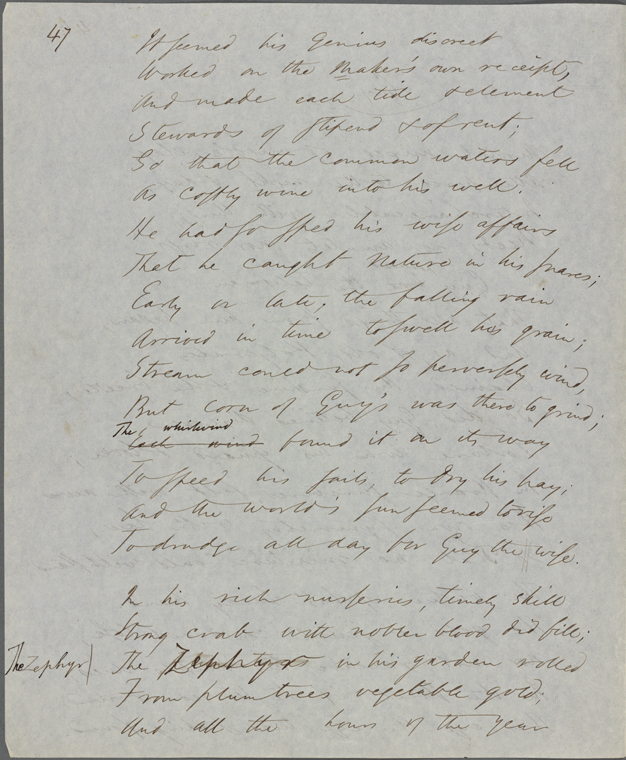 47
It seemed his Genius discreet
Worked on the Maker's own receipt,
And made each tide & element
Stewards of stipend & of rent;
So that the common waters fell
As costly wine into his well.
He had so sped his wise affairs
That he caught Nature in his snares;
Early or late, the falling rain
Arrived in time to swell his grain;
Stream could not so perversely wind,
But corn of Guy's was there to grind;
The whirlwind
Each wind found it on its way
To speed his sails, to dry his hay;
And the world's sun seemed to rise
To drudge all day for Guy the wise.
In his rich nurseries, timely skill
Strong crab with nobler blood did fill;
The Zephyr
The Zephyrs in his garden rolled
From plum trees vegetable gold;
And all the hours of the year